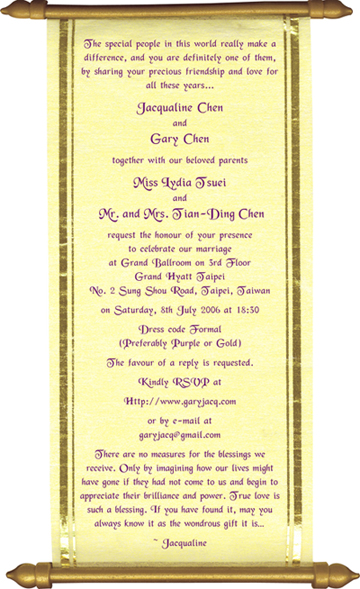 The special people in this world really make a
difference, and you are definitely one of them,
by sharing your precious friendship and love for
all these years...
Jacqualine Chen
and
Gary Chen
together with our beloved parents
Miss Lydia Tsuei
and
Mr. and Mrs. Tian-Ding Chen
request the honour of your presence
to celebrate our marriage
at Grand Ballroom on 3rd Floor
Grand Hyatt Taipei
No. 2 Sung Shou Road, Taipei, Taiwan
on Saturday, 8th July 2006 at 18:30
Dress code Formal
(Preferably Purple or Gold)
The favour of a reply is requested.
Kindly RSVP at
Http://www.garyjacq.com
or by e-mail at
garyjacq@gmail.com
There are no measures for the blessings we
receive. Only by imagining how our lives might
have gone if they had not come to us and begin to
appreciate their brilliance and power. True love is
such a blessing. If you have found it, may you
always know it as the wondrous gift it is...
~ Jacqualine